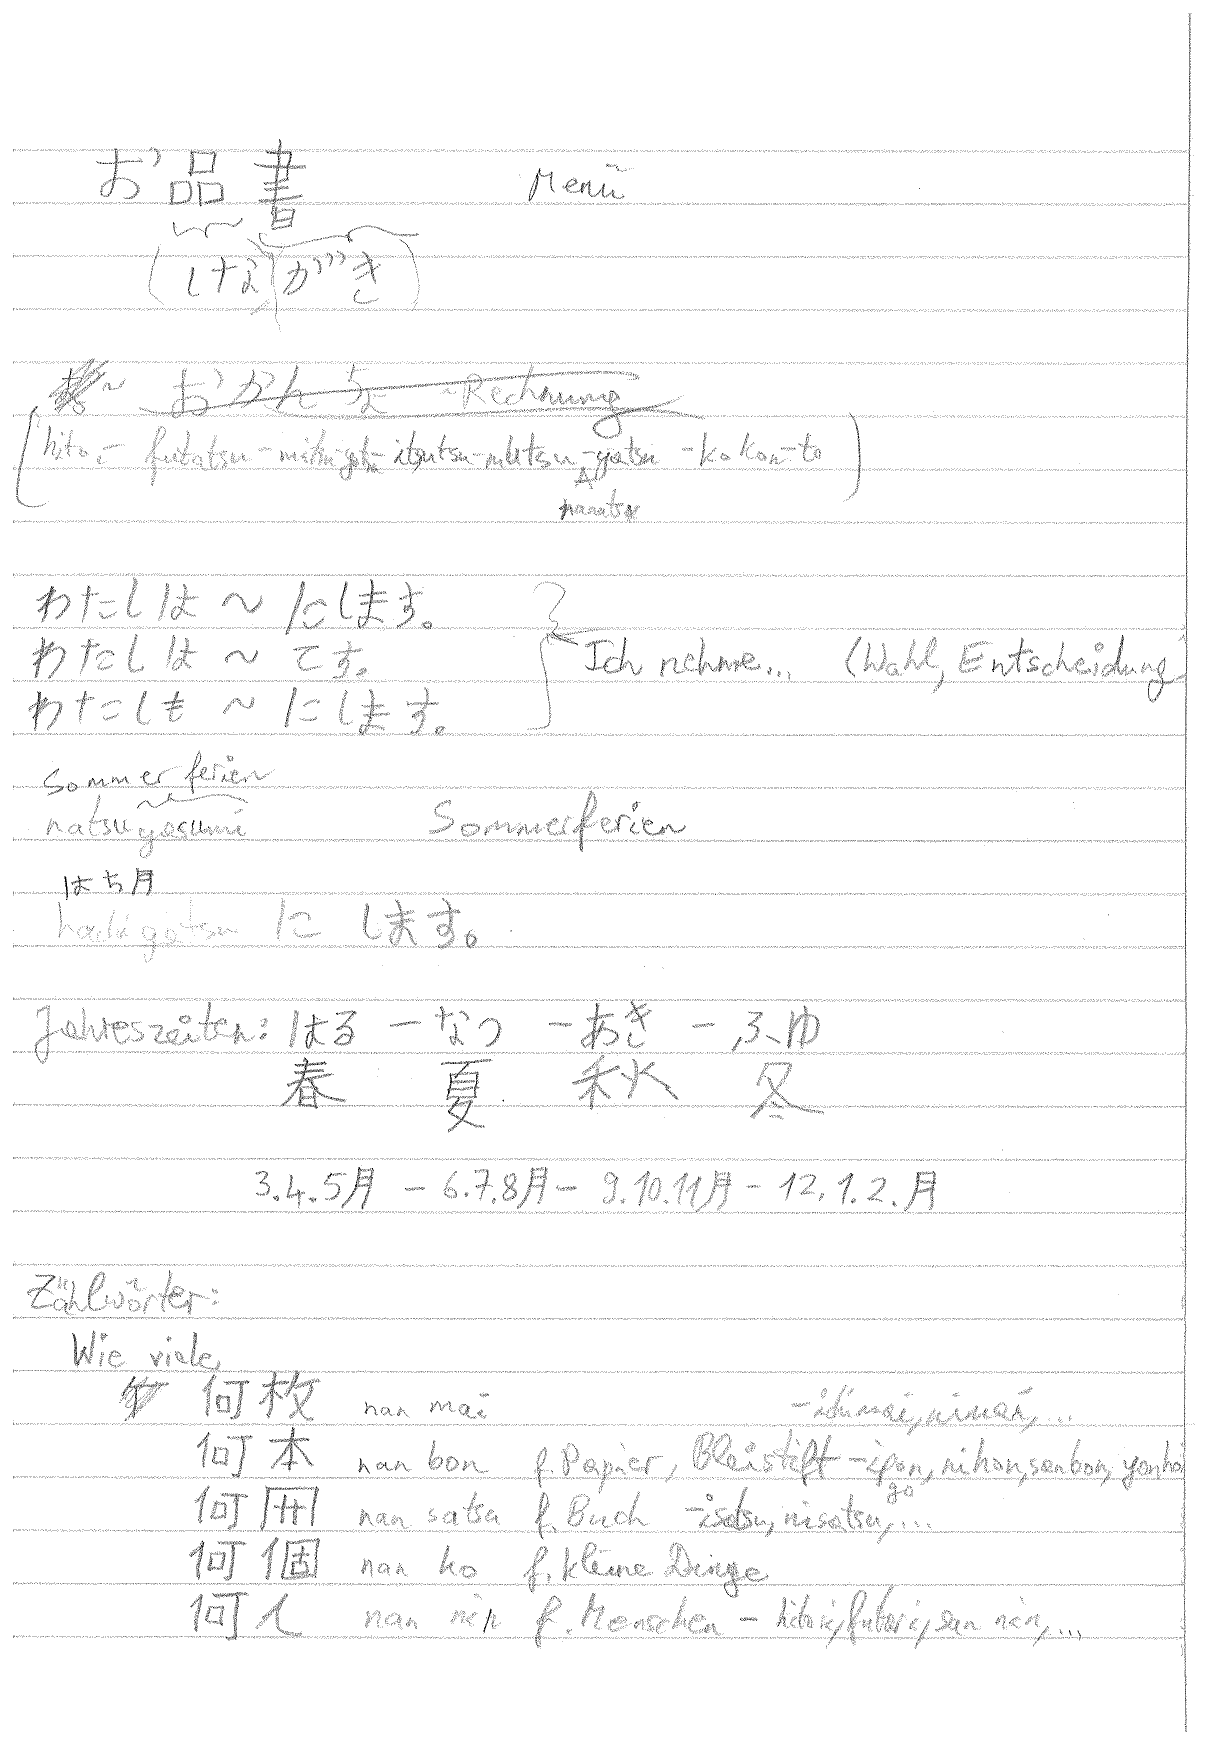 お品書 Menü
(しな)(がき)
~ おかんちよ - Rechnung
(hito - futatsu - mitsu - yotsu - itsutsu - mutsu - yatsu - kokon - to)
nanatsu
わたしは ~ にします。
わたしは ~ てす。 Ich nehme... (Wahl, Entscheidung)
わたしも ~ にします。
Sommerferien
natsuyasumi Sommerferien
はち月
hachigatsu に します。
Jahreszeiten: はる - なつ - あき - ふゆ
春 夏 秋 冬
3.4.5月 - 6.7.8月 - 9.10.11月 - 12.1.2.月
Zählwörter:
Wie viele
何枚 nan mai - ichimai, nimai, ...
何本 nan bon f. Papier, Bleistift - ipon, nihon, sanbon, yonho
go
何冊 nan satsu f. Buch - isatsu, nisatsu, ...
何個 nan ko f. kleine Dinge
何人 nan nin f. Menschen - hitori, futari, san nin, ...